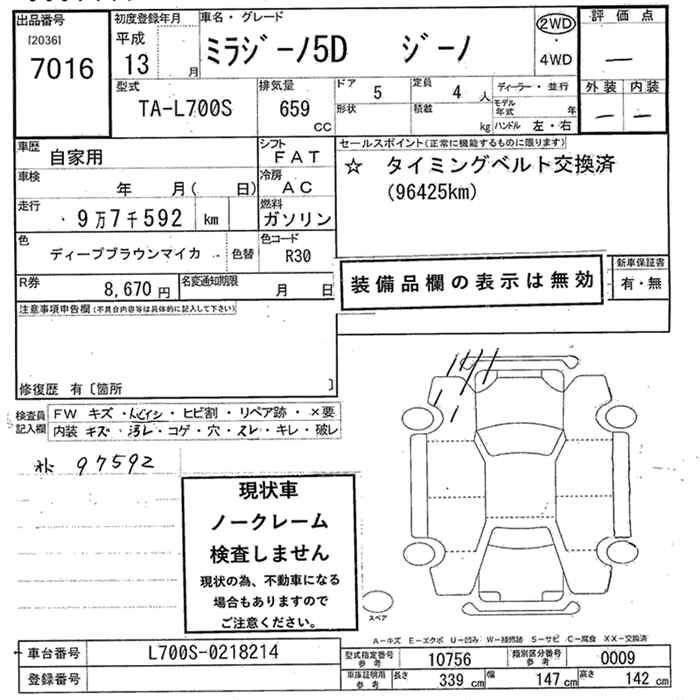 出品番号
[2036]
7016
初度登録年月
平成
13 月
車名・グレード
ミラジーノ5D ジーノ
2WD
・
4WD
評価点
―
外装 内装
― ―
型式
TA-L700S
排気量
659
CC
ドア 5
定員 4 人
形状
積載 kg
ディーラー・並行
モデル年式 年
ハンドル 左・右
車歴
自家用
シフト
FAT
車検
年 月( 日)
冷房
AC
走行
9万7千592 km
燃料
ガソリン
色
ディープブラウンマイカ
色替
色コード
R30
R券
8,670円
名変通知期限
月 日
セールスポイント(正常に機能するものに限ります)
☆ タイミングベルト交換済
(96425km)
装備品欄の表示は無効
新車保証書
有・無
注意事項申告欄(不具合内容等は具体的に記入して下さい)
修復歴 有〔箇所 〕
検査員
記入欄
FW キズ・トビイシ・ヒビ割・リペア跡・×要
内装 キズ・汚レ・コゲ・穴・スレ・キレ・破レ
97592
現状車
ノークレーム
検査しません
現状の為、不動車になる
場合もありますので
ご注意ください。
スペア
A-キズ E-エクボ U-凹み W-補修跡 S-サビ C-腐食 XX-交換済
車台番号
L700S-0218214
登録番号
型式指定番号
参考
10756
類別区分番号
参考
0009
車庫証明用
参考
長さ 339 cm
幅 147 cm
高さ 142 cm